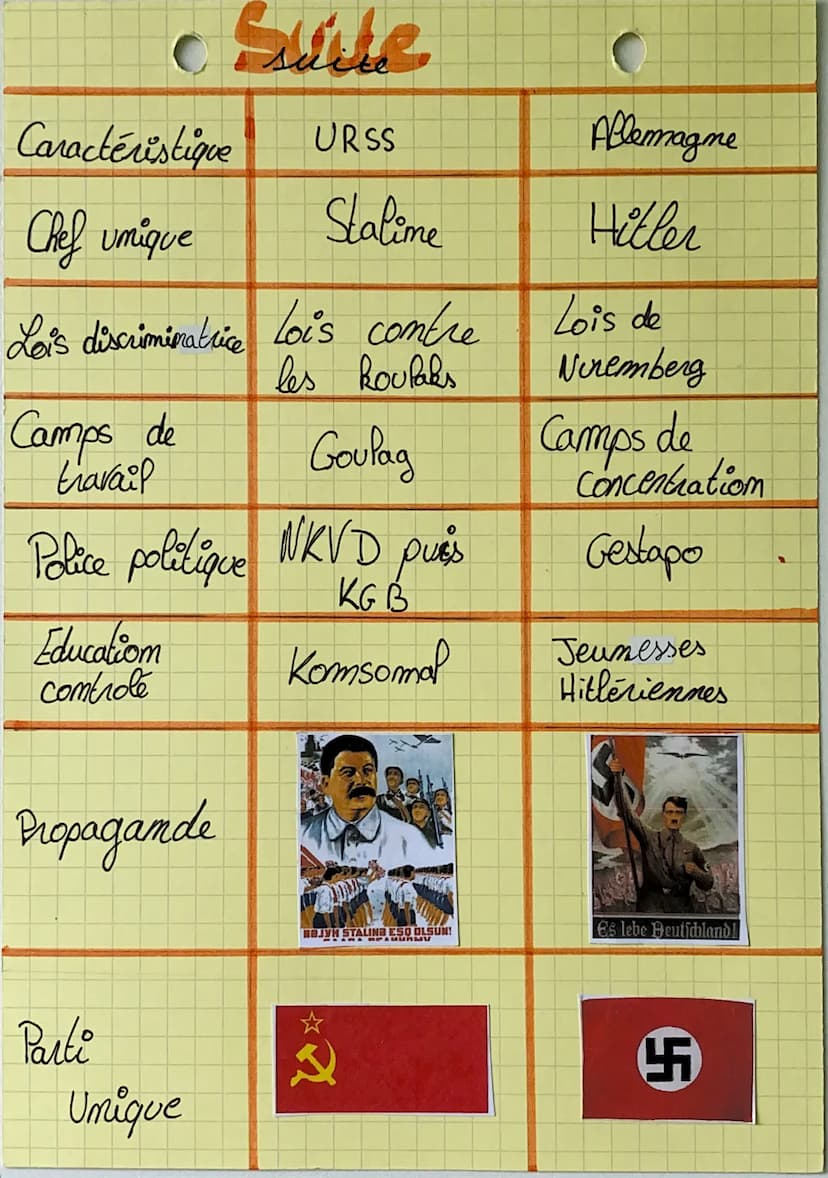 Suite
suite
Caractéristique
URSS
Allemagne
Chef unique
Staline
Hitler
Lois discriminatrice
Lois contre
les koulaks
Lois de
Nuremberg
Camps de
travail
Goulag
Camps de
concentration
Police politique
NKVD puis
KGB
Gestapo
Education
controlé
Komsomol
Jeunesses
Hitlériennes
Propagande
STALINƏ EŞQ OLSUN!
Es lebe Deutschland!
Parti
Unique